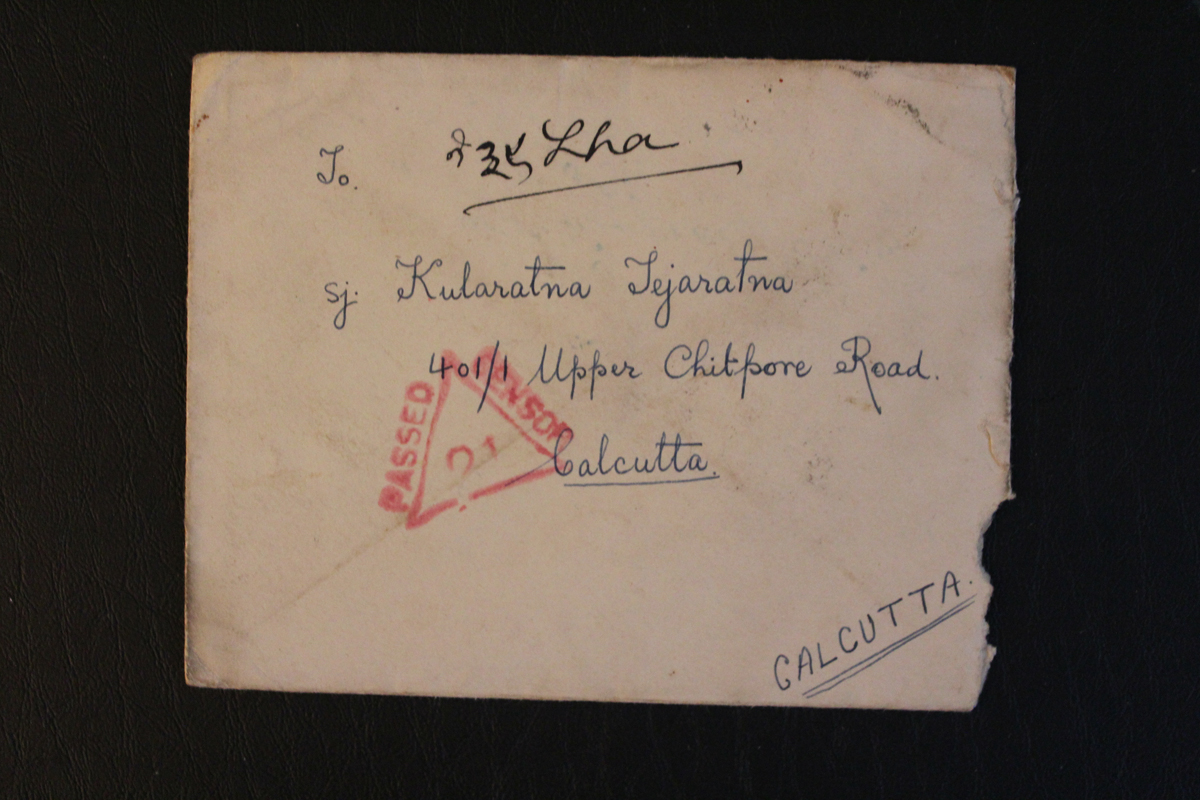 To.
Lha
Sj. Kularatna Tejaratna
401/1 Upper Chitpore Road.
Calcutta.
PASSED
CENSOR
CALCUTTA.